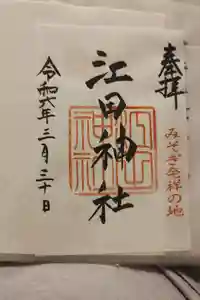 奉拝
みそぎ発祥の地
江田神社
令和六年三月三十日